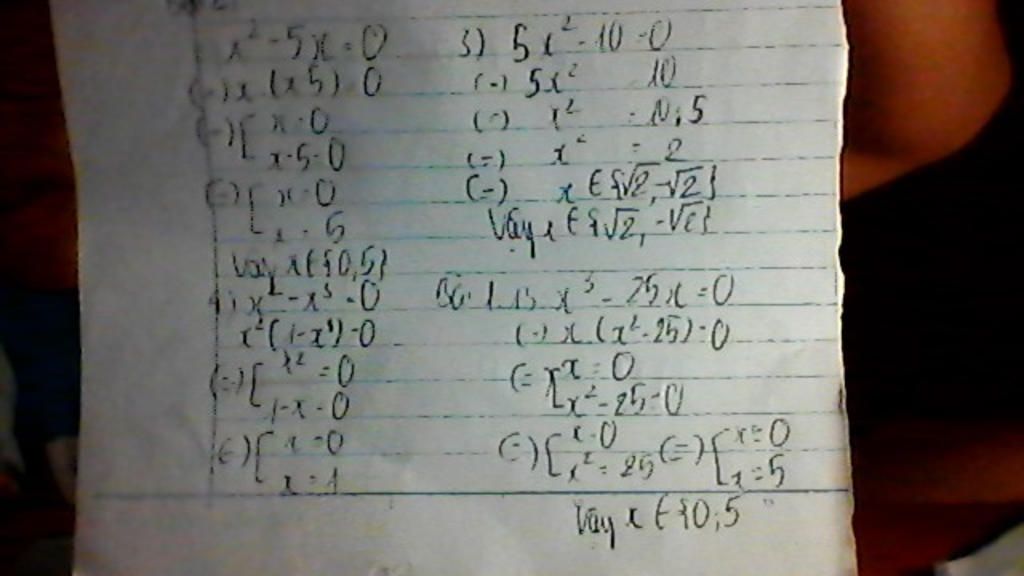 x² - 5x = 0
(=) x (x 5) = 0
(=) [ x = 0
x - 5 = 0
(=) [ x = 0
x = 5
Vậy x ∈ {0, 5}
4) x² - x³ = 0
x² (1 - x) = 0
(=) [ x² = 0
1 - x = 0
(=) [ x = 0
x = 1
3) 5x² - 10 = 0
(=) 5x² 10
(=) x² = 10 : 5
(=) x² = 2
(=) x ∈ {√2, -√2}
Vậy x ∈ {√2, -√2}
x³ - 25x = 0
(=) x (x² - 25) = 0
(= [ x = 0
x² - 25 = 0
(=) [ x = 0 (=) [ x = 0
x² = 25 x = 5
Vậy x ∈ {0 ; 5